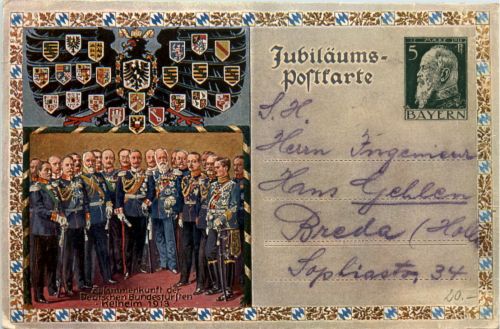 Jubiläums-
Postkarte
12. MÄRZ 1911
5 Pf
BAYERN
S. H.
Herrn Ingenieur
Hans Gehlen
Breda (Hol
Sophiastr. 34
20.-
Zusammenkunft der
Deutschen Bundesfürsten
Kelheim 1913